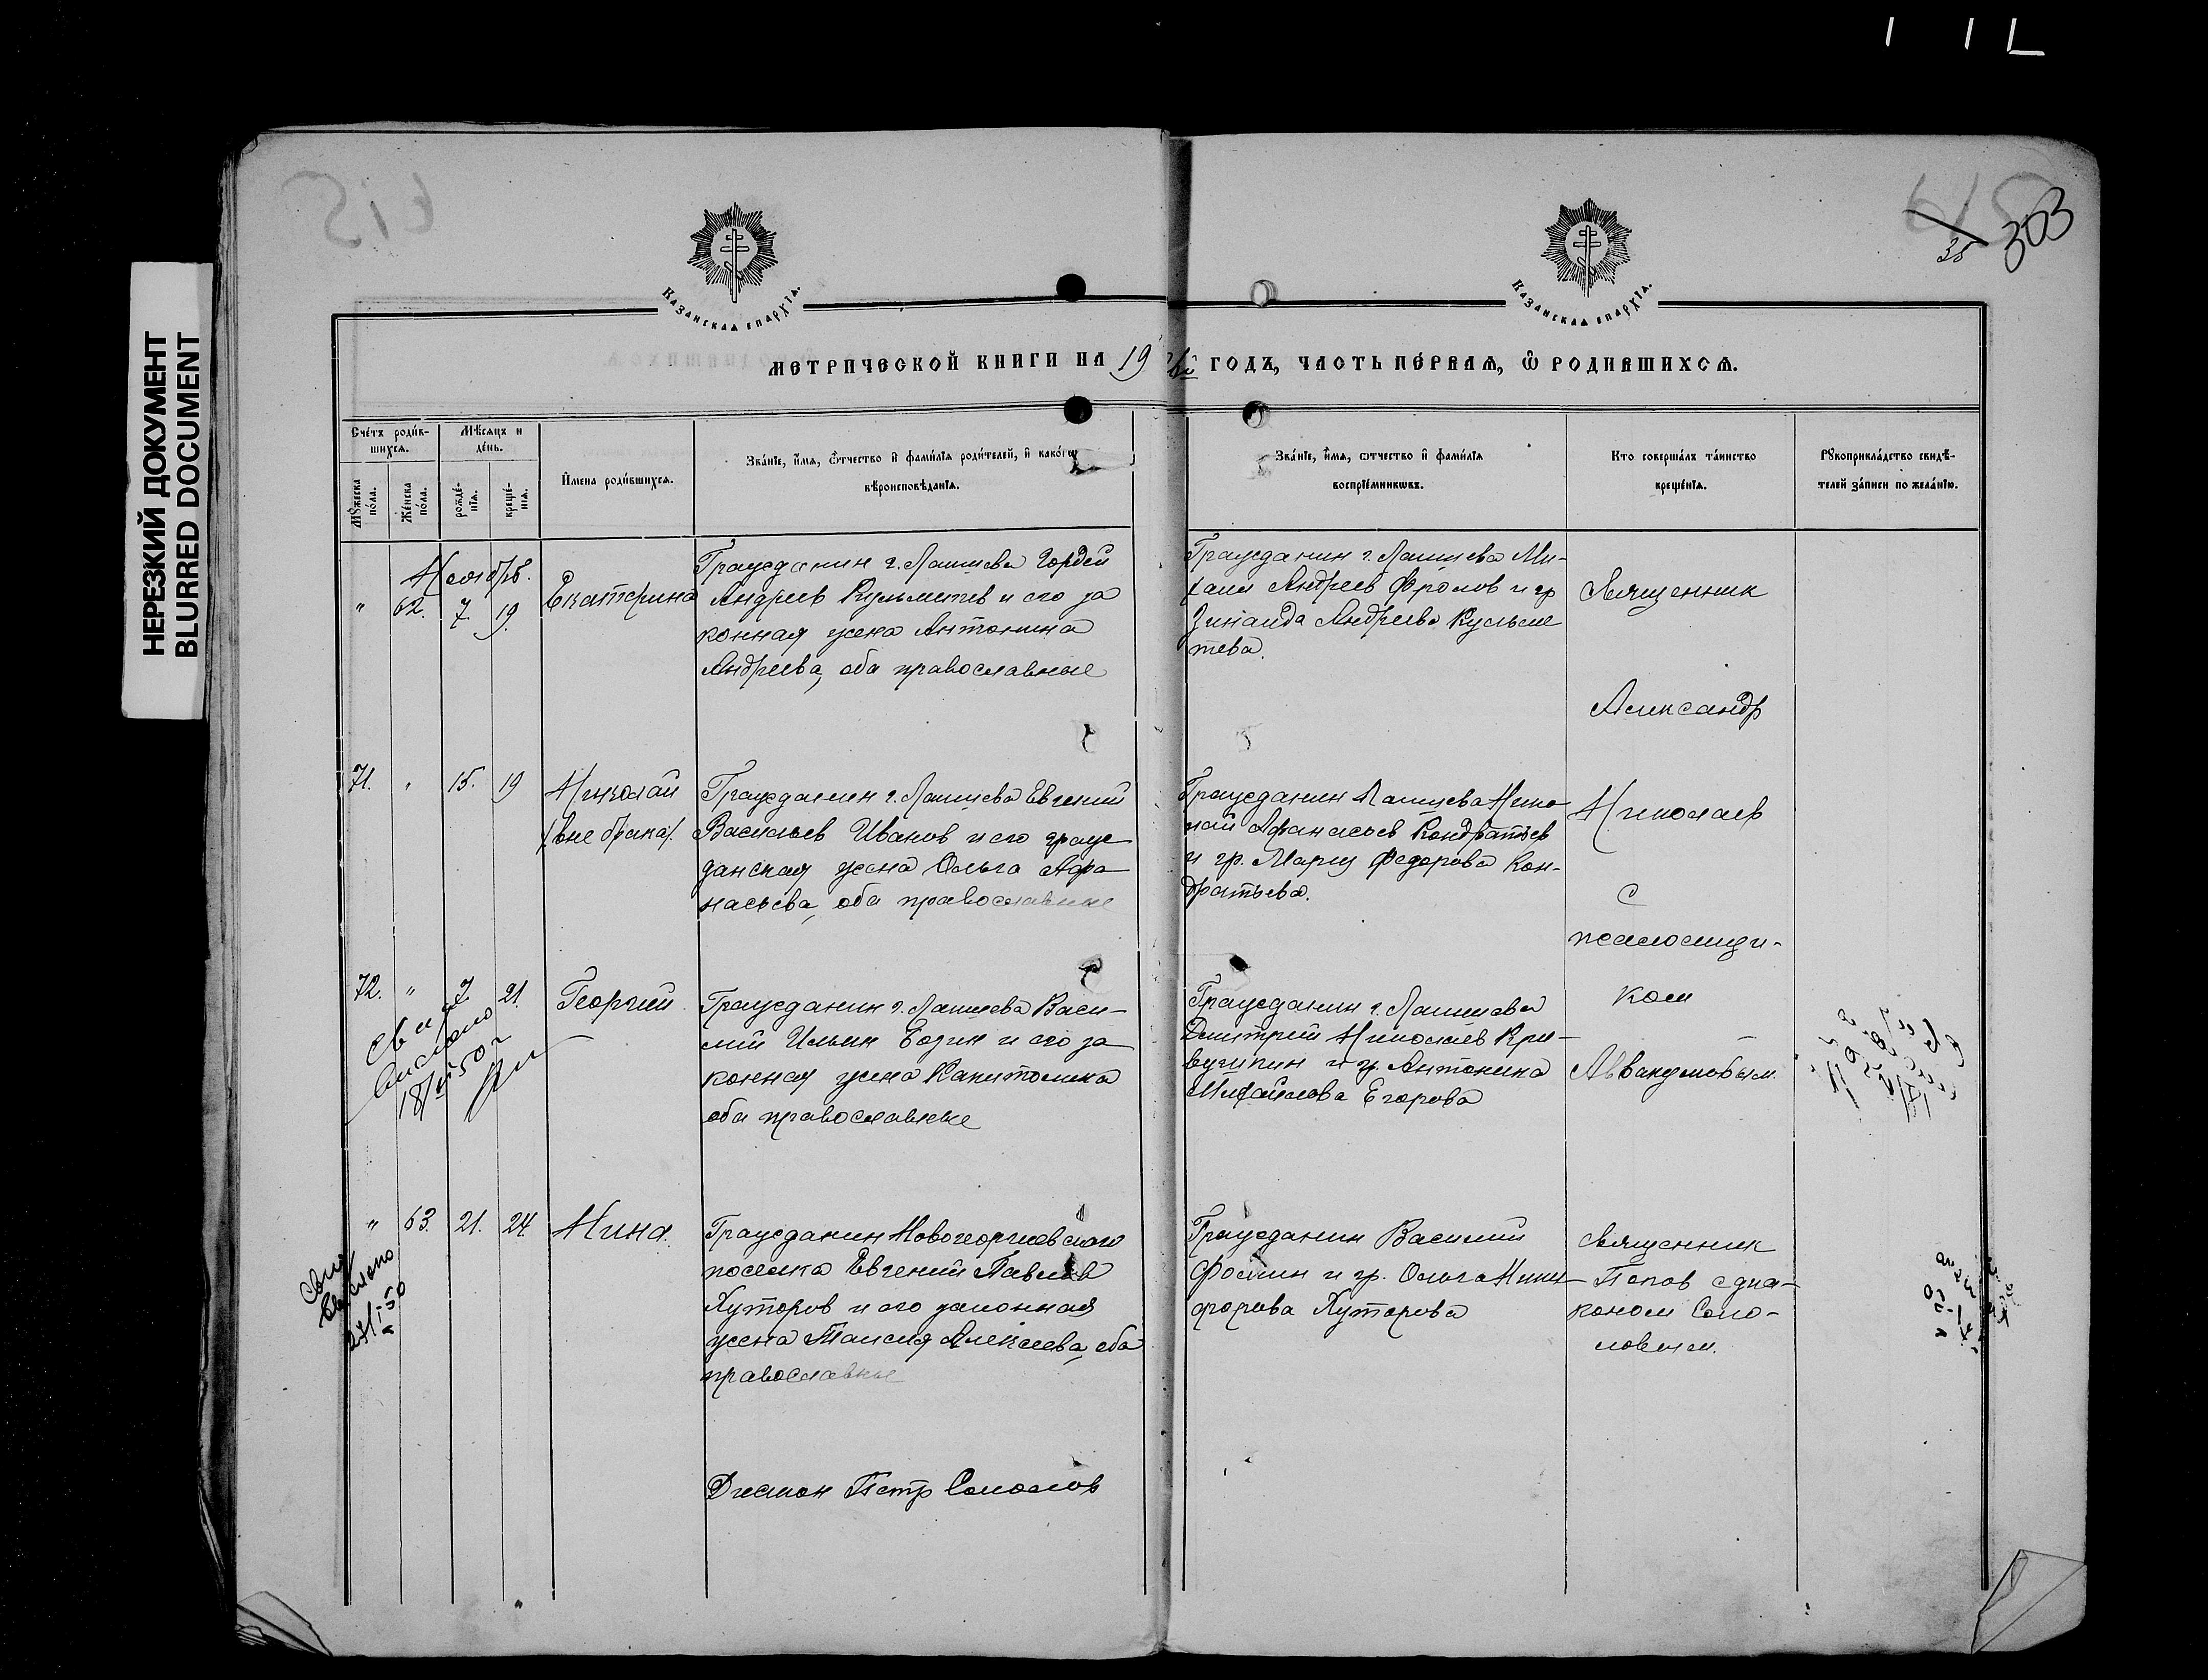 НЕРЕЗКИЙ ДОКУМЕНТ
BLURRED DOCUMENT
303
35
Казанская епархїѧ.
Казанская епархїѧ.
МЕТРИЧЕСКОЙ КНИГИ НА 19 ГОДЪ, ЧАСТЬ ПЕ́РВАЯ, Ѽ РОДИВШИХСЯ.
Сче́тъ роди́в-
шихся.
Мѣ́сяцъ и
де́нь.
Мꙋ́жеска
по́ла.
Же́нска
по́ла.
рожде́-
нїя.
креще́-
нїя.
И҆мена роди́вшихся.
Зва́нїе, и҆́мя, ѻ҆́тчество и҆ фами́лїя роди́телей, и҆ како́гѡ
вѣроисповѣ́данїя.
Зва́нїе, и҆́мя, ѻ҆́тчество и҆ фами́лїя
воспрїе́мникѡвъ.
Кто соверша́лъ та́инство
креще́нїя.
Рꙋкоприкла́дство свидѣ́-
телей за́писи по жела́нїю.
Ноябрь.
" 62. 7. 19.
Екатерина
Гражданин г. Лаишева Гордей
Андреев Кульметев и его за
конная жена Антонина
Андреева, оба православные
Гражданин г. Лаишева Ми-
хаил Андреев Фролов и гр
Зинаида Андреева Кульме
тева.
Священник
Александр
71. " 15. 19
Николай
(вне брака).
Гражданин г. Лаишева Евгений
Васильев Иванов и его граж
данская жена Ольга Афа
насьева, оба православные
Гражданин Лаишева Нико
лай Афанасьев Кондратьев
и гр. Мария Федорова Кон-
дратьева.
Николаев
с
псаломщи-
72. " 7. 21.
Георгий
Гражданин г. Лаишева Васи-
лий Ильин Едзин и его за
конная жена Капитолина
оба православные
Гражданин г. Лаишева
Дмитрий Николаев Кри-
вушкин и гр. Антонина
Михайлова Егорова
ком
Аввакумовым.
Свид
выслано
18/VI 50 г
" 63. 21. 24
Нина.
Гражданин Новогеоргиевского
поселка Евгений Павлов
Хуторов и его законная
жена Таисия Алексеева, оба
православные
Гражданин Василий
Фомин и гр. Ольга Ники
форова Хуторова
священник
Попов с диа-
коном Соко-
ловым.
Свид
выслано
Диакон Петр Соколов